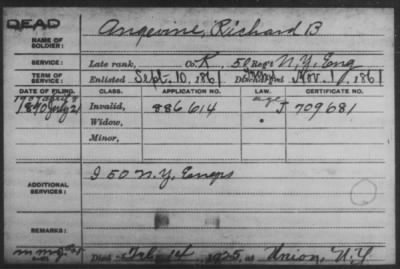 DEAD
NAME OF SOLDIER: Angevine, Richard B
SERVICE: Late rank, Co. K, 50 Reg't N.Y. Eng
TERM OF SERVICE: Enlisted Sept. 10, 1861 Nov. 1, 1861
DATE OF FILING. CLASS. APPLICATION NO. LAW. CERTIFICATE NO.
1890 July 21 Invalid, 886614 J 709681
Widow,
Minor,
ADDITIONAL SERVICES: I 50 N.Y. Engrs
REMARKS:
Died Feb. 14, 1925, at Union, N.Y.